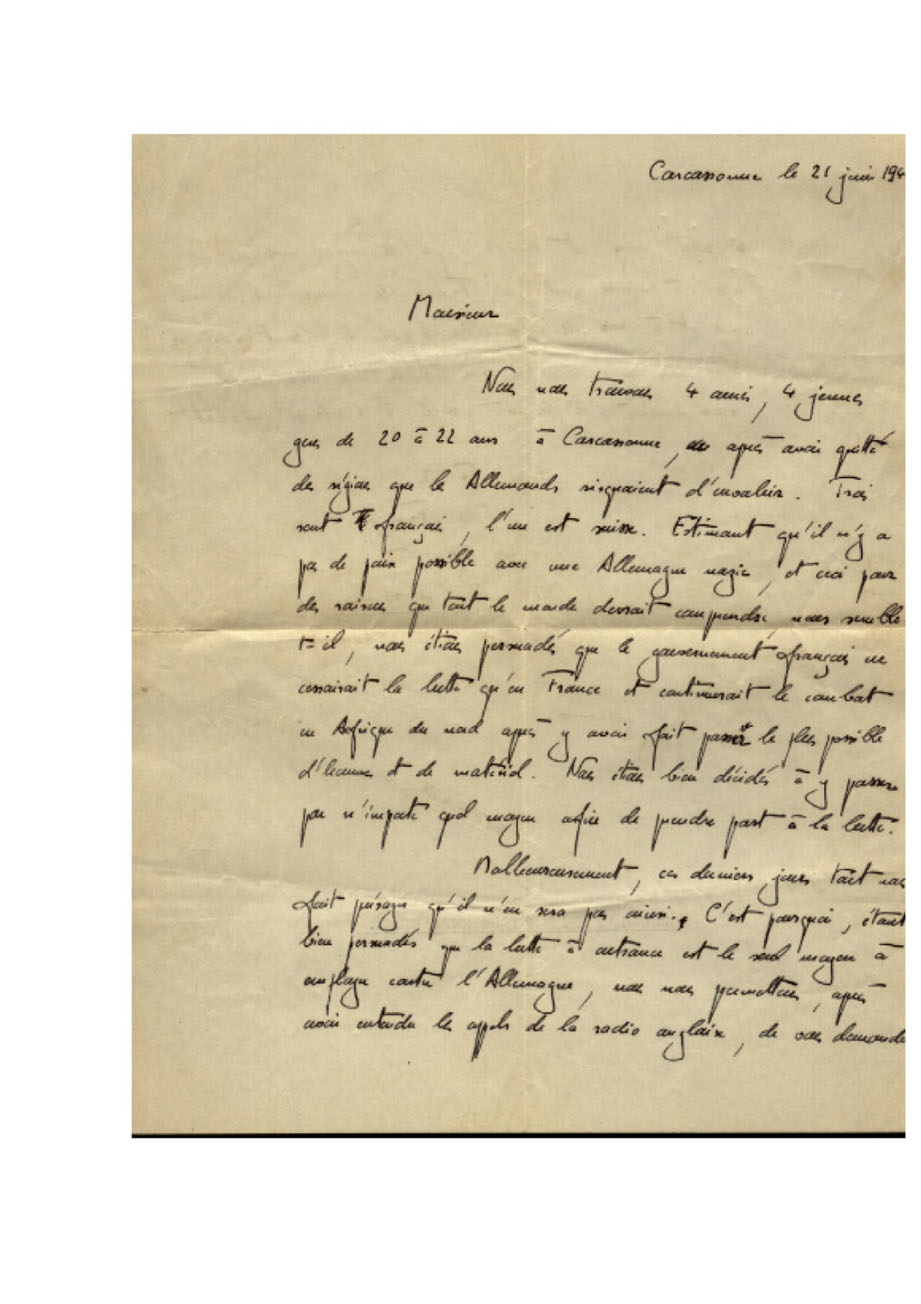 Carcassonne le 21 juin 194
Monsieur
Nous nous trouvons 4 amis, 4 jeunes
gens de 20 à 22 ans à Carcassonne, après avoir quitté
des régions que les Allemands risquaient d'envahir. Trois
sont français, l'un est suisse. Estimant qu'il n'y a
pas de paix possible avec une Allemagne nazie, et ceci pour
des raisons que tout le monde devrait comprendre, nous semble
t-il, nous étions persuadés que le gouvernement français ne
cesserait la lutte qu'en France et continuerait le combat
en Afrique du nord après y avoir fait passer le plus possible
d'hommes et de matériel. Nous étions bien décidés à y passer
par n'importe quel moyen afin de prendre part à la lutte.
Malheureusement, ces derniers jours tout nous
fait présager qu'il n'en sera pas ainsi. C'est pourquoi, étant
bien persuadés que la lutte à outrance est le seul moyen à
employer contre l'Allemagne, nous nous permettons, après
avoir entendu les appels de la radio anglaise, de vous demande